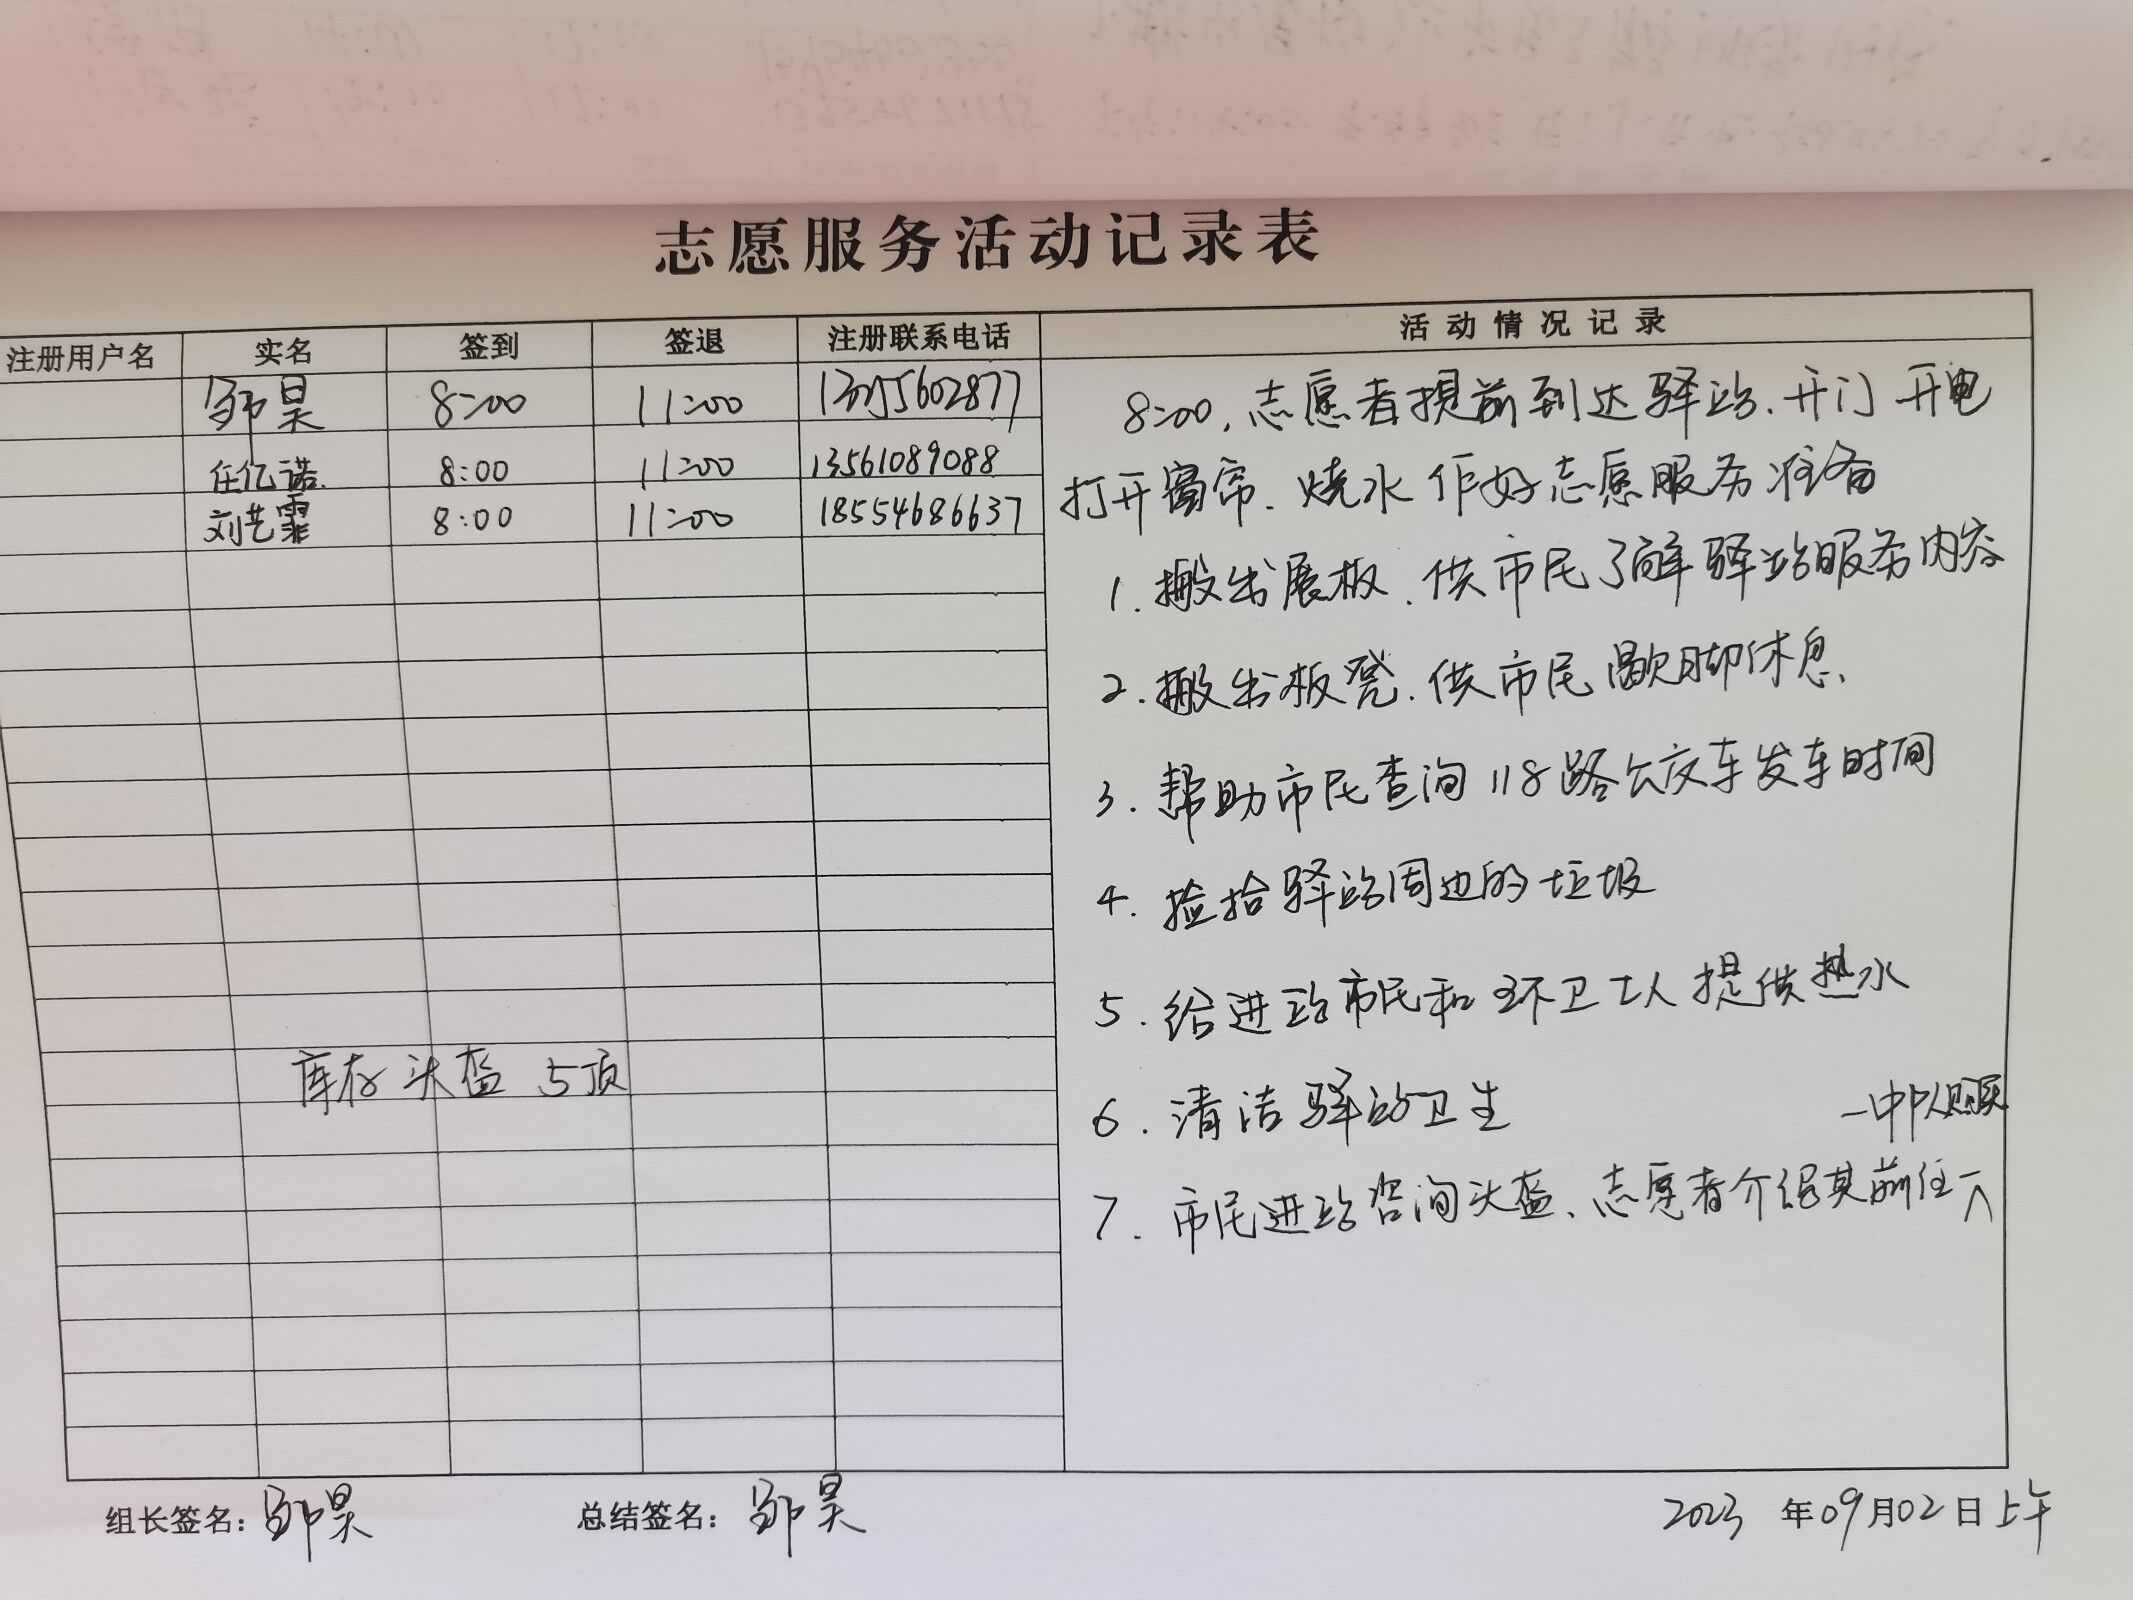 志愿服务活动记录表
注册用户名 实名 签到 签退 注册联系电话 活动情况记录
邹昊 8:00 11:00 5602877
任亿诺 8:00 11:00 13561089088
刘艺霏 8:00 11:00 18554686637
8:00,志愿者提前到达驿站、开门开电
打开窗帘、烧水作好志愿服务准备
1.搬出展板、供市民了解驿站服务内容
2.搬出板凳、供市民歇脚休息、
3.帮助市民查询118路公交车发车时间
4.捡拾驿站周边的垃圾
5.给进站市民和环卫工人提供热水
库存头盔5顶
6.清洁驿站卫生
一中队购买
7.市民进站咨询头盔、志愿者介绍其前往
组长签名:邹昊 总结签名:邹昊 2023年09月02日上午